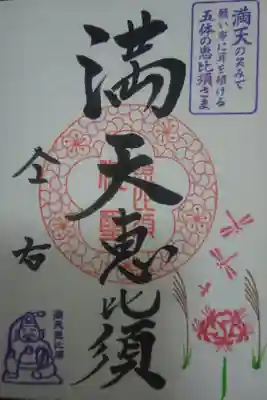 満天の笑みで
願い事に耳を傾ける
五体の恵比須さま
満天恵比須
仝右
満天恵比須